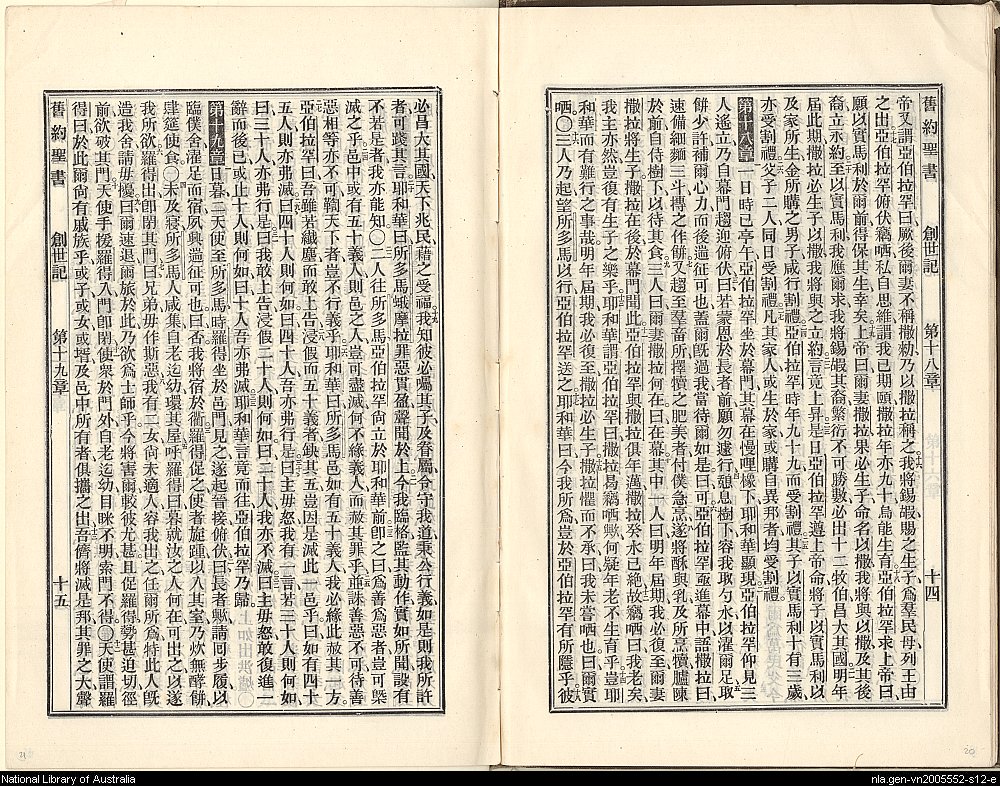 舊約聖書 創世記 第十八章 十四
帝又謂亞伯拉罕曰厥後爾妻不稱撒勑乃以撒拉稱之我將錫嘏賜之生子爲羣民母列王由
之出亞伯拉罕俯伏竊哂私自思維謂我已期頤撒拉年亦九十烏能生育亞伯拉罕求上帝曰
願以實馬利於爾前得保其生幸矣上帝曰爾妻撒拉果必生子命名以撒我將與以撒及其後
裔立永約至以實馬利我應爾求我將錫嘏其裔繁衍不可勝數必出十二牧伯昌大其國明年
屆此期撒拉必生子以撒我將與之立約言竟上昇是日亞伯拉罕遵上帝命將子以實馬利以
及家所生金所購之男子咸行割禮亞伯拉罕時年九十九而受割禮其子以實馬利十有三歲
亦受割禮父子二人同日受割禮凡其家人或生於家或購自異邦者均受割禮
第十八章 一日時已亭午亞伯拉罕坐於幕門其幕在慢哩橡下耶和華顯現亞伯拉罕仰見三
人遙立乃自幕門趨迎俯伏曰若蒙恩於長者前願勿遽行憩息樹下容我取勺水以濯爾足取
餅少許補爾心力而後遄征可也蓋爾旣過我當待爾如是曰可亞伯拉罕亟進幕中語撒拉曰
速備細麵三斗摶之作餅又趨至羣畜所擇犢之肥美者付僕急烹遂將酥與乳及所烹犢臚陳
於前自侍樹下以待其食三人曰爾妻撒拉何在曰在幕其中一人曰明年屆期我必復至爾妻
撒拉將生子撒拉在後於幕門間此亞伯拉罕與撒拉俱年邁撒拉癸水已絕故竊哂曰我老矣
我主亦然豈復有生子之樂乎耶和華謂亞伯拉罕曰撒拉曷竊哂歟何疑年老不生育乎豈耶
和華而有難行之事哉明年屆期我必復至撒拉必生子撒拉懼而不承曰我未嘗哂也曰爾實
哂〇三人乃起望所多馬以行亞伯拉罕送之耶和華曰今我所爲豈於亞伯拉罕有所隱乎彼
20
必昌大其國天下兆民藉之受福我知彼必囑其子及眷屬令守我道秉公行義如是則我所許
者可踐其言耶和華曰所多馬蛾摩拉罪惡貫盈聲聞於上今我臨格監其動作實如所聞歟有
不若是者我亦能知〇二人往所多馬亞伯拉罕尙立於耶和華前卽之曰爲善爲惡者豈可槩
滅之乎邑中或有五十義人則邑之人豈可盡滅何不緣義人而赦其罪乎並誅善惡不可待善
惡相等亦不可鞫天下者豈不行義乎耶和華曰所多馬邑如有五十義人我必緣此赦其一方
亞伯拉罕曰吾雖若纖塵而敢上告浸假而五十義者缺其五豈因是滅此一邑乎曰如有四十
五人則亦弗滅曰四十人則何如曰四十人吾亦弗行是曰主毋怒我有一言若三十人則何如
曰三十人亦弗行是曰我敢上告浸假二十人則何如曰二十人我亦不滅曰主毋怒敢復進一
辭而後已或止十人則何如曰十人吾亦弗滅耶和華言竟而往亞伯拉罕乃歸
第十九章 日暮二天使至所多馬時羅得坐於邑門見之遂起晉接俯伏曰長者歟請囘步履以
臨僕舍濯足而宿夙興遄征可也曰否我將宿於衢羅得促之使者旋踵以入其室乃炊無酵餅
肆筵使食〇未及寢所多馬人咸集自老迄幼環其屋呼羅得曰暮就汝之人何在可出之以遂
我所欲羅得出卽閉其門曰兄弟毋作斯惡我有二女尙未適人容我出之任爾所爲特此人旣
造我舍請毋擾曰爾速退爾旅於此乃欲爲士師乎今將害爾較彼尤甚且促羅得勢甚迫切徑
前欲破其門天使手援羅得入門卽閉使衆於門外自老迄幼目眯不明索門不得〇天使謂羅
得曰於此爾尙有戚族乎或子或女或壻及邑中所有者俱攜之出吾儕將滅是邦其罪之大聲
舊約聖書 創世記 第十九章 十五
21
National Library of Australia
nla.gen-vn2005552-s12-e